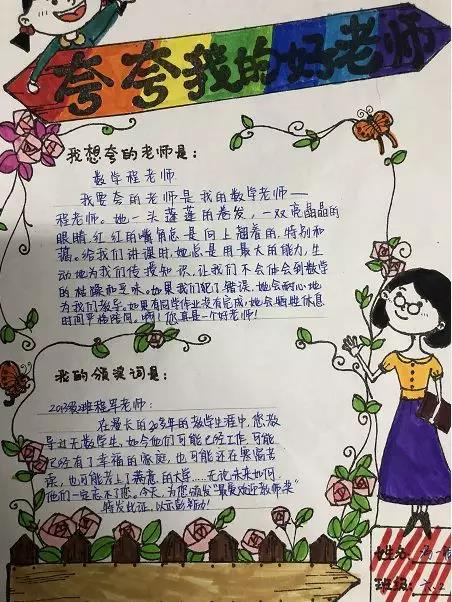 夸夸我的好老师
我想夸的老师是：
数学程老师
我要夸的老师是我的数学老师——
程老师。她一头蓬蓬的卷发，一双亮晶晶的
眼睛，红红的嘴角总是向上翘着的，特别和
蔼。给我们讲课时，她总是用最大的能力，生
动地为我们传授知识，让我们不会体会到数学
的枯燥和乏味。如果我们犯了错误，她会耐心地
为我们教导。如果有同学作业没有完成，她会牺牲休息
时间严格陪同。啊！您真是一个好老师！
我的颁奖词是：
程军老师：
在漫长的20多年的教学生涯中，您教
导过无数学生，如今他们可能已经工作，可能
已经有了幸福的家庭，也可能还在寒窗苦
读，也可能考上了满意的大学……无论未来如何，
他们一定忘不了您。今天，为您颁发“最受欢迎教师奖”
特发此证，以示彰
姓名：
班级：六.2